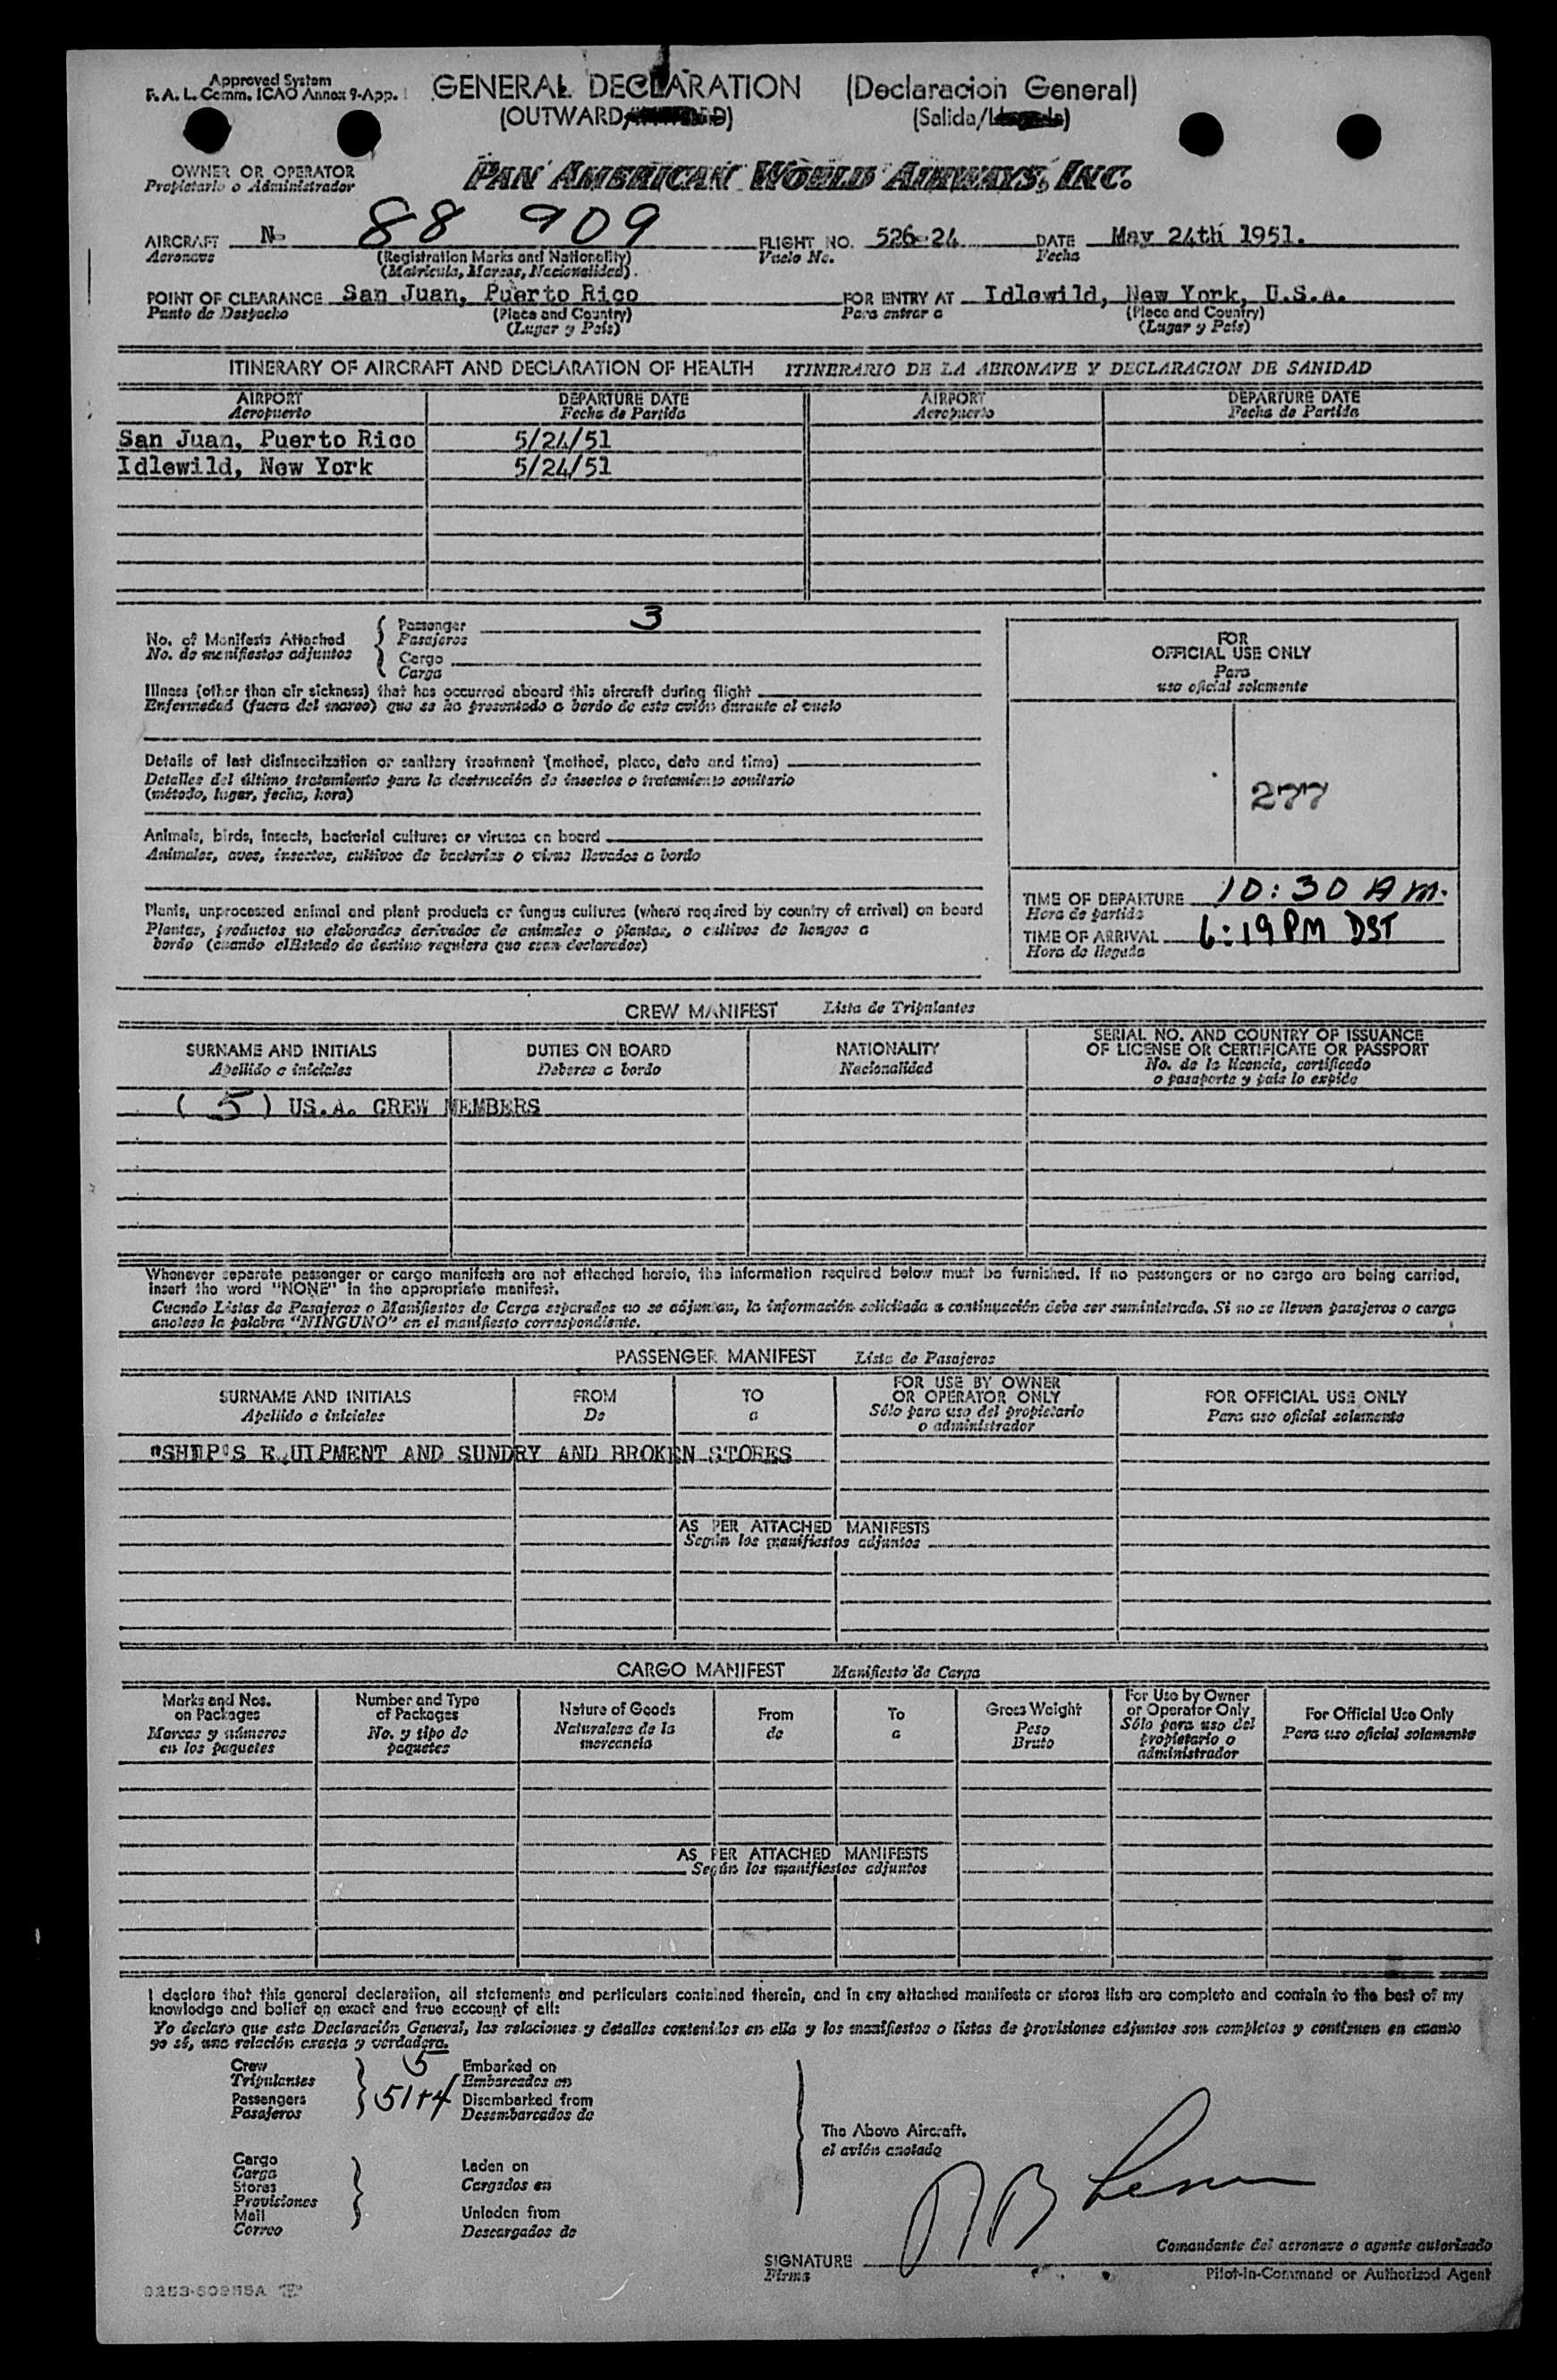 Approved System
F. A. L. Comm. ICAO Annex 9-App. 1
GENERAL DECLARATION (Declaracion General)
(OUTWARD/ ) (Salida/ )
OWNER OR OPERATOR
Propietario o Administrador
PAN AMERICAN WORLD AIRWAYS, INC.
AIRCRAFT N- 88 909 FLIGHT NO. 526-24 DATE May 24th 1951.
Aeronave (Registration Marks and Nationality) Vuelo No. Fecha
(Matricula, Marcas, Nacionalidad).
POINT OF CLEARANCE San Juan, Puerto Rico FOR ENTRY AT Idlewild, New York, U.S.A.
Punto de Despacho (Place and Country) Para entrar a (Place and Country)
(Lugar y País) (Lugar y País)
ITINERARY OF AIRCRAFT AND DECLARATION OF HEALTH ITINERARIO DE LA AERONAVE Y DECLARACION DE SANIDAD
AIRPORT DEPARTURE DATE AIRPORT DEPARTURE DATE
Aeropuerto Fecha de Partida Aeropuerto Fecha de Partida
San Juan, Puerto Rico 5/24/51
Idlewild, New York 5/24/51
No. of Manifests Attached { Passenger 3
No. de manifiestos adjuntos Pasajeros
Cargo
Carga
Illness (other than air sickness) that has occurred aboard this aircraft during flight
Enfermedad (fuera del mareo) que se ha presentado a bordo de este avión durante el vuelo
Details of last disinsectization or sanitary treatment (method, place, date and time)
Detalles del último tratamiento para la destrucción de insectos o tratamiento sanitario
(método, lugar, fecha, hora)
Animals, birds, insects, bacterial cultures or viruses on board
Animales, aves, insectos, cultivos de bacterias o virus llevados a bordo
Plants, unprocessed animal and plant products or fungus cultures (where required by country of arrival) on board
Plantas, productos no elaborados derivados de animales o plantas, o cultivos de hongos a
bordo (cuando el Estado de destino requiera que sean declarados)
FOR
OFFICIAL USE ONLY
Para
uso oficial solamente
277
TIME OF DEPARTURE 10:30 AM.
Hora de partida
TIME OF ARRIVAL 6:19 PM DST
Hora de llegada
CREW MANIFEST Lista de Tripulantes
SURNAME AND INITIALS DUTIES ON BOARD NATIONALITY SERIAL NO. AND COUNTRY OF ISSUANCE
OF LICENSE OR CERTIFICATE OR PASSPORT
Apellido e iniciales Deberes a bordo Nacionalidad No. de la licencia, certificado
o pasaporte y país lo expide
( 5 ) US.A. CREW MEMBERS
Whenever separate passenger or cargo manifests are not attached hereto, the information required below must be furnished. If no passengers or no cargo are being carried,
insert the word "NONE" in the appropriate manifest.
Cuando Listas de Pasajeros o Manifiestos de Carga separados no se adjuntan, la información solicitada a continuación debe ser suministrada. Si no se lleven pasajeros o carga
anótese la palabra "NINGUNO" en el manifiesto correspondiente.
PASSENGER MANIFEST Lista de Pasajeros
SURNAME AND INITIALS FROM TO FOR USE BY OWNER
OR OPERATOR ONLY FOR OFFICIAL USE ONLY
Apellido e iniciales De a Sólo para uso del propietario
o administrador Para uso oficial solamente
"SHIP'S EQUIPMENT AND SUNDRY AND BROKEN STORES
AS PER ATTACHED MANIFESTS
Según los manifiestos adjuntos
CARGO MANIFEST Manifiesto de Carga
Marks and Nos.
on Packages
Marcas y números
en los paquetes
Number and Type
of Packages
No. y tipo de
paquetes
Nature of Goods
Naturaleza de la
mercancía
From
de
To
a
Gross Weight
Peso
Bruto
For Use by Owner
or Operator Only
Sólo para uso del
propietario o
administrador
For Official Use Only
Para uso oficial solamente
AS PER ATTACHED MANIFESTS
Según los manifiestos adjuntos
I declare that this general declaration, all statements and particulars contained therein, and in any attached manifests or stores lists are complete and contain to the best of my
knowledge and belief an exact and true account of all:
Yo declaro que esta Declaración General, las relaciones y detalles contenidos en ella y los manifiestos o listas de provisiones adjuntos son completos y contienen en cuanto
yo sé, una relación exacta y verdadera.
Crew 5 Embarked on
Tripulantes Embarcados en
Passengers 51+4 Disembarked from
Pasajeros Desembarcados de
The Above Aircraft.
el avión anotado
Cargo
Carga
Stores
Provisiones
Mail
Correo
Laden on
Cargados en
Unladen from
Descargados de
SIGNATURE
Firma
Comandante del aeronave o agente autorizado
Pilot-in-Command or Authorized Agent